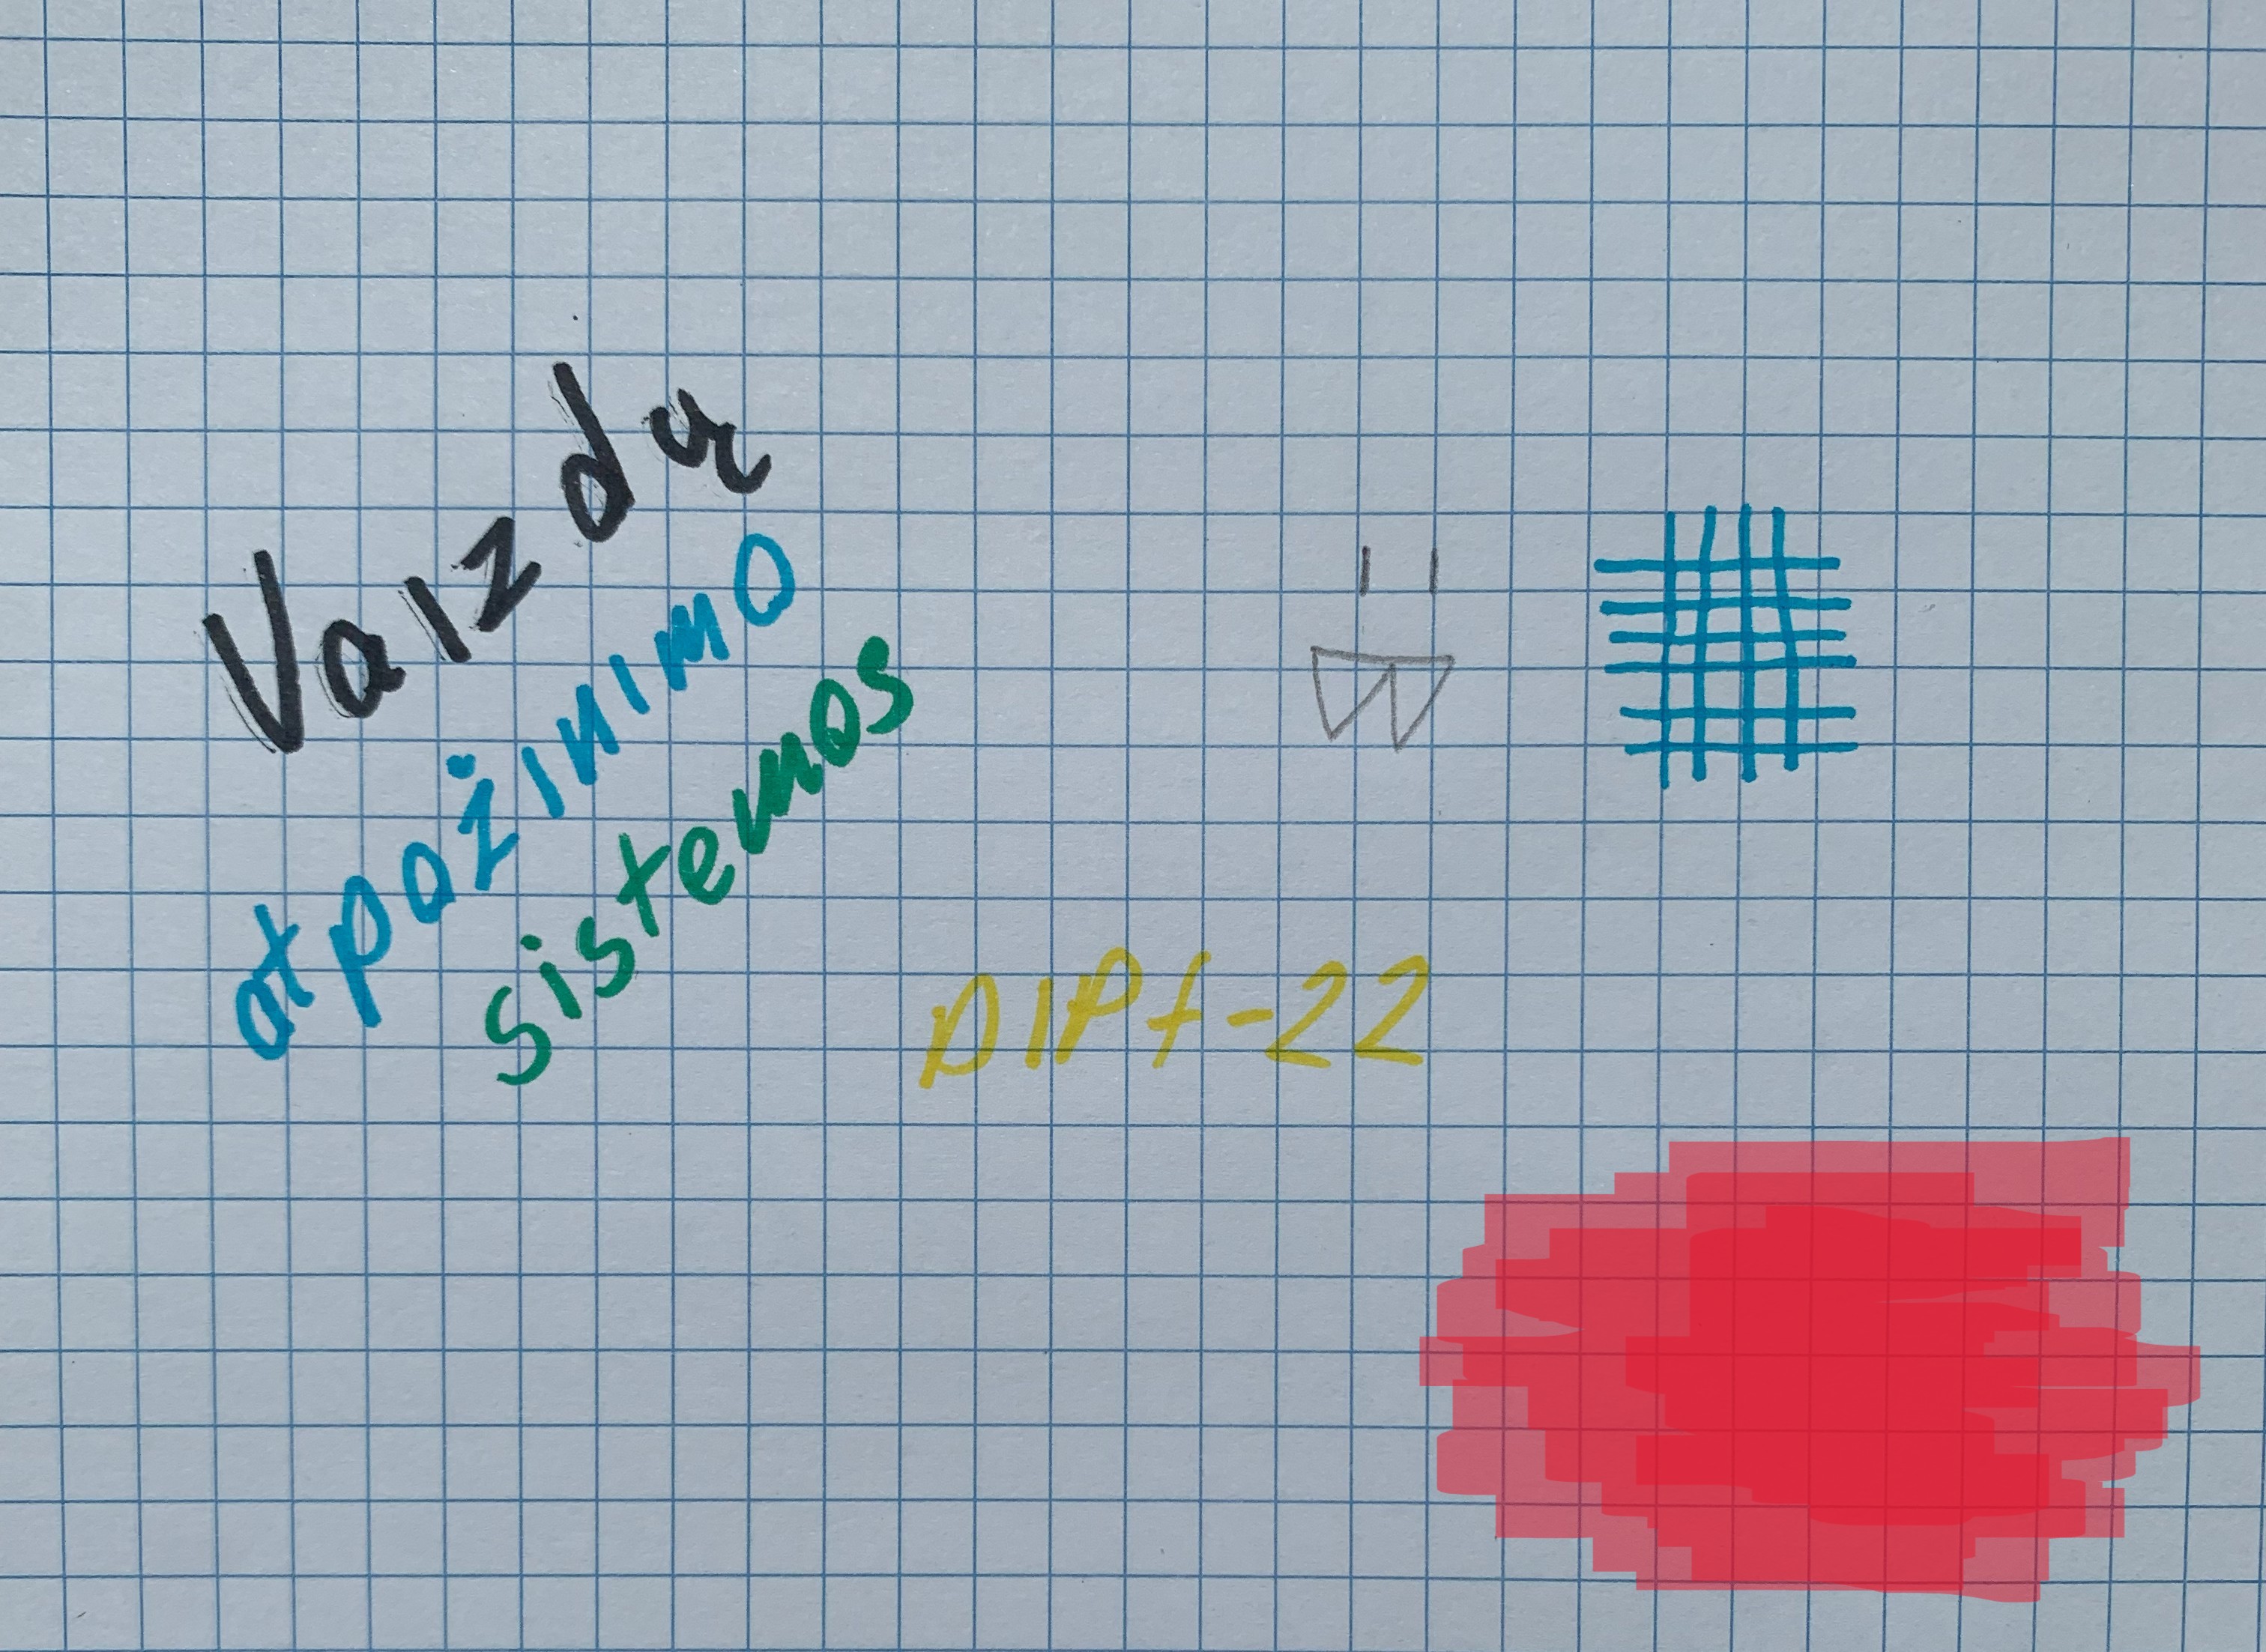 Vaizdų
atpožinimo
sistemos
DIPf-22